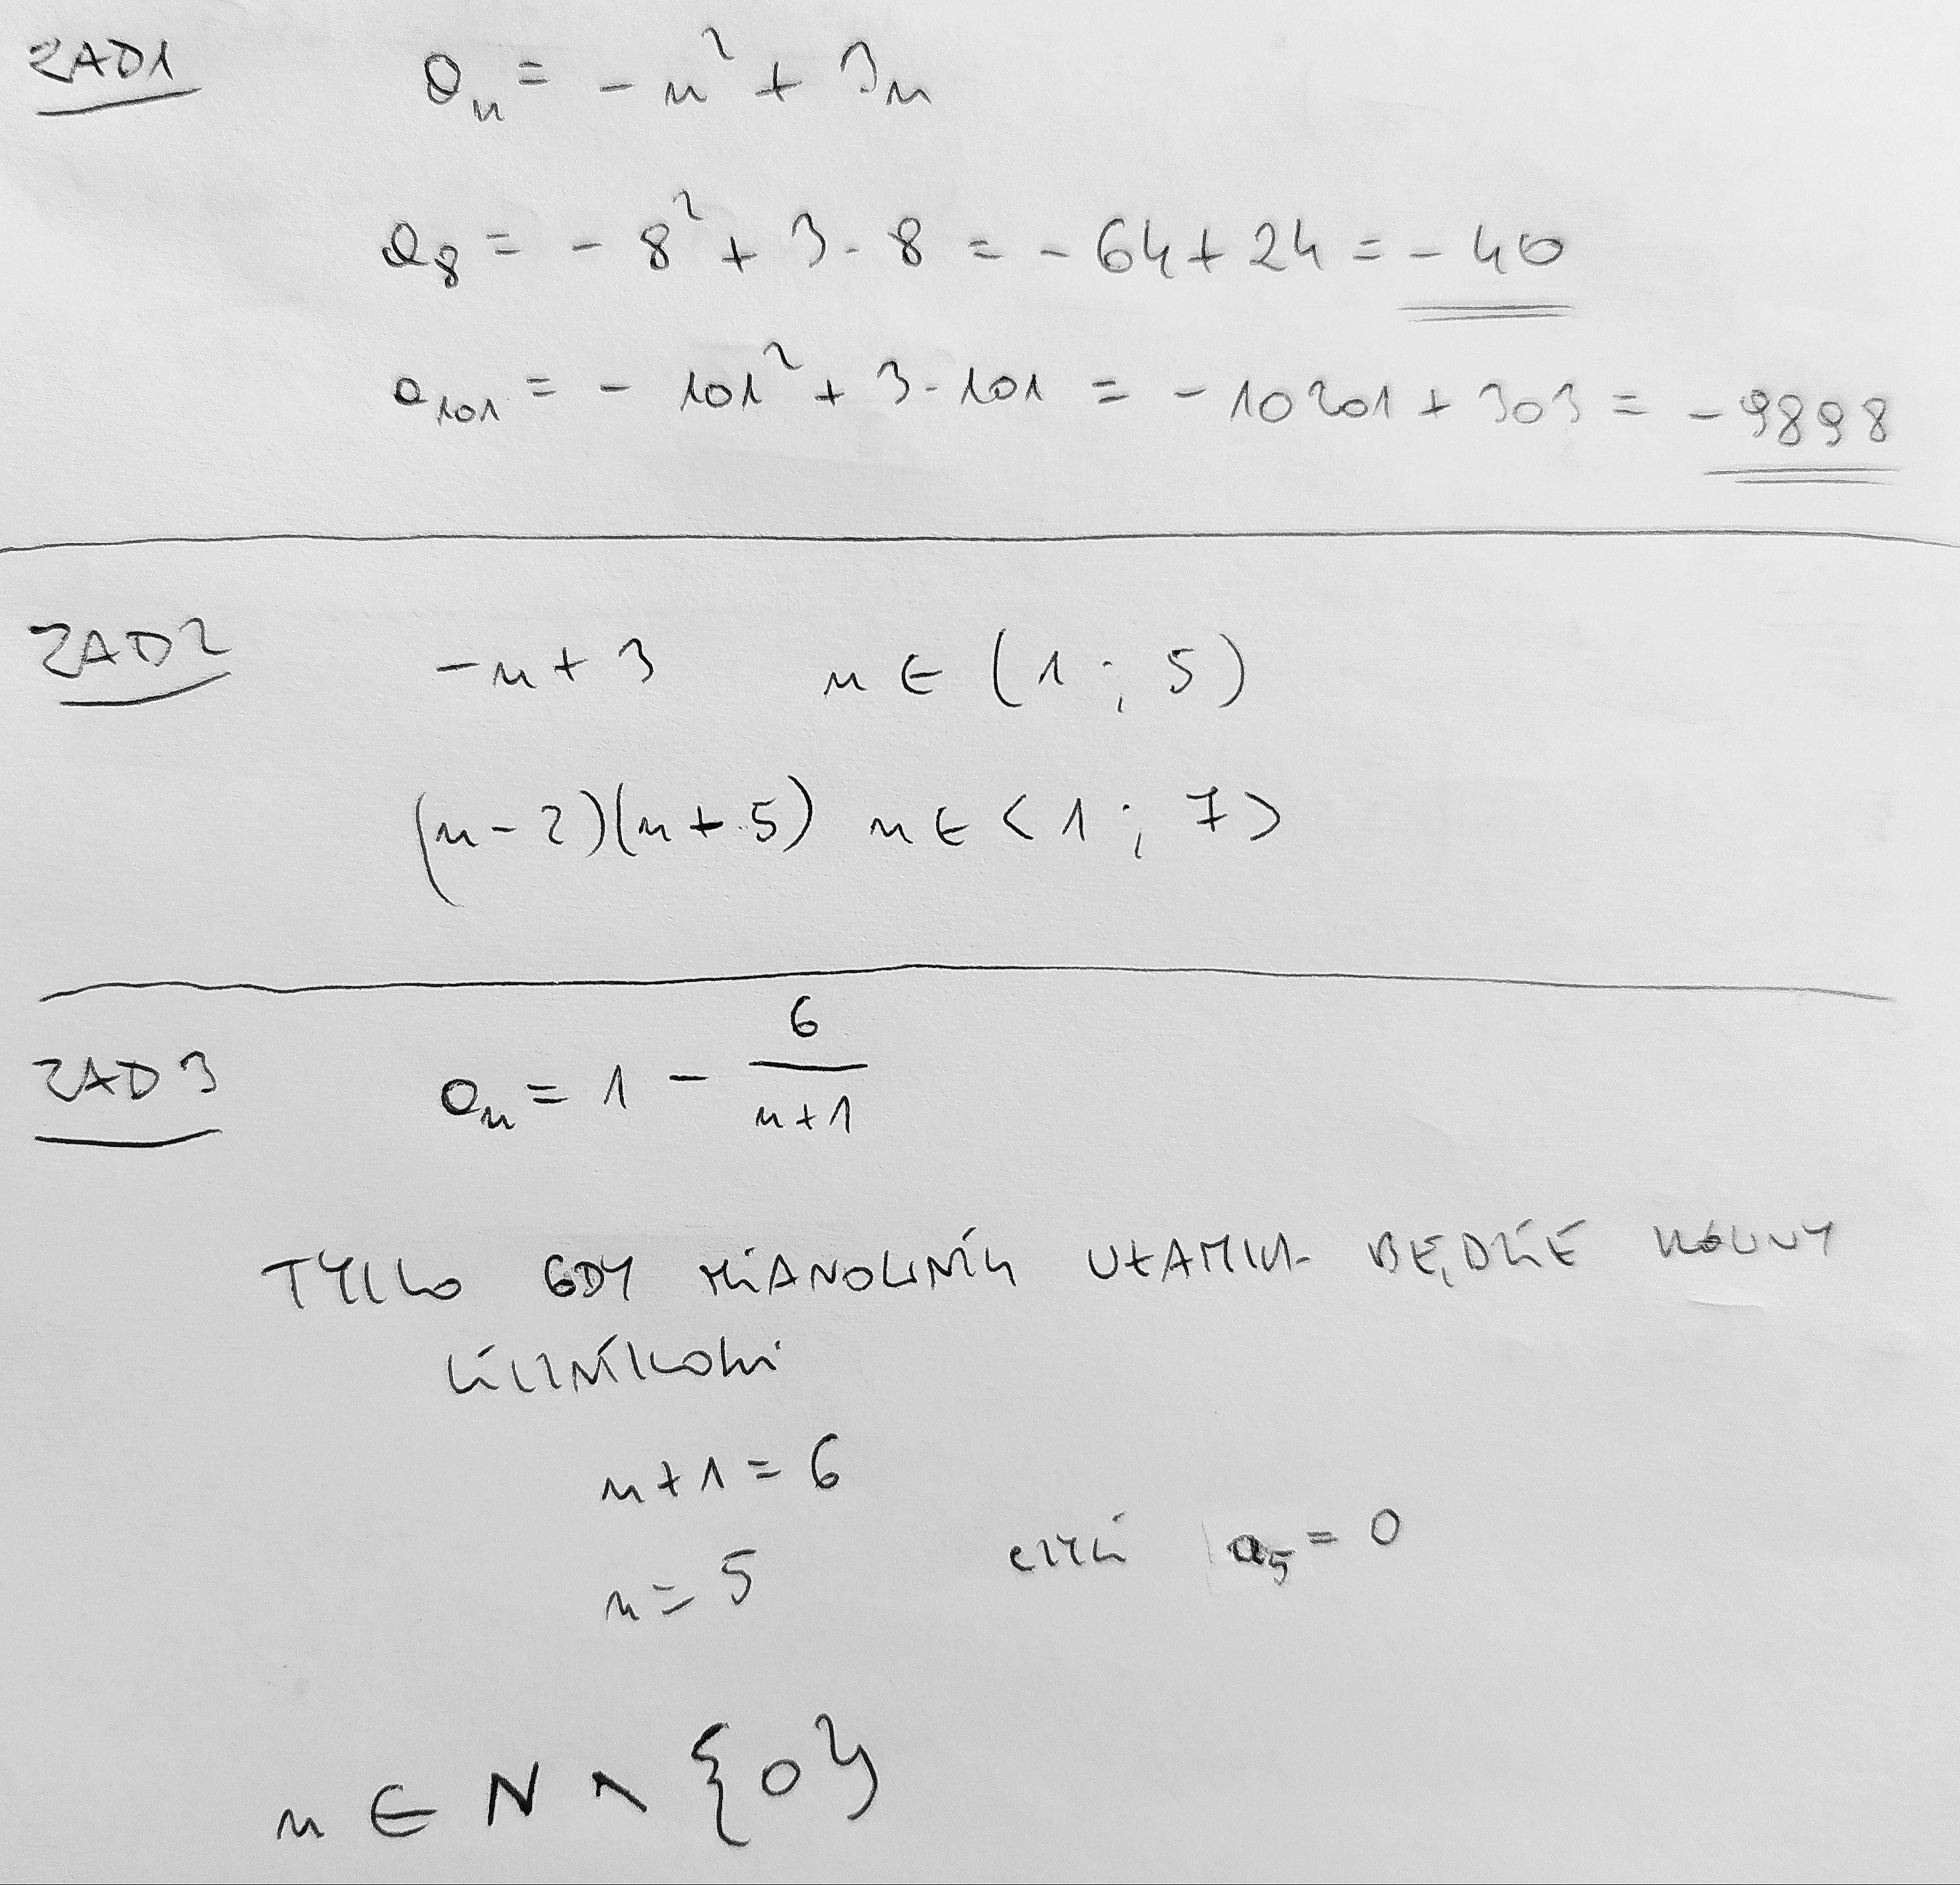 ZAD1 aₙ = -n² + 3n
a₈ = -8² + 3·8 = -64 + 24 = -40
a₁₀₁ = -101² + 3·101 = -10201 + 303 = -9898
ZAD2 -n+3 n ∈ (1 ; 5)
(n-2)(n+5) n ∈ <1 ; 7>
ZAD3 aₙ = 1 - 6/(n+1)
TYLKO GDY MiANOWNiK UŁAMKA BĘDZiE RÓWNY
LiCZNiKOWi
n+1=6
n=5 czyli a₅=0
n ∈ N \ {0}